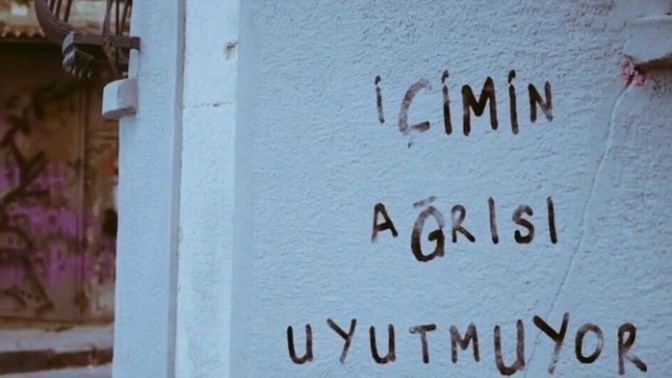 İÇİMİN
AĞRISI
UYUTMUYOR